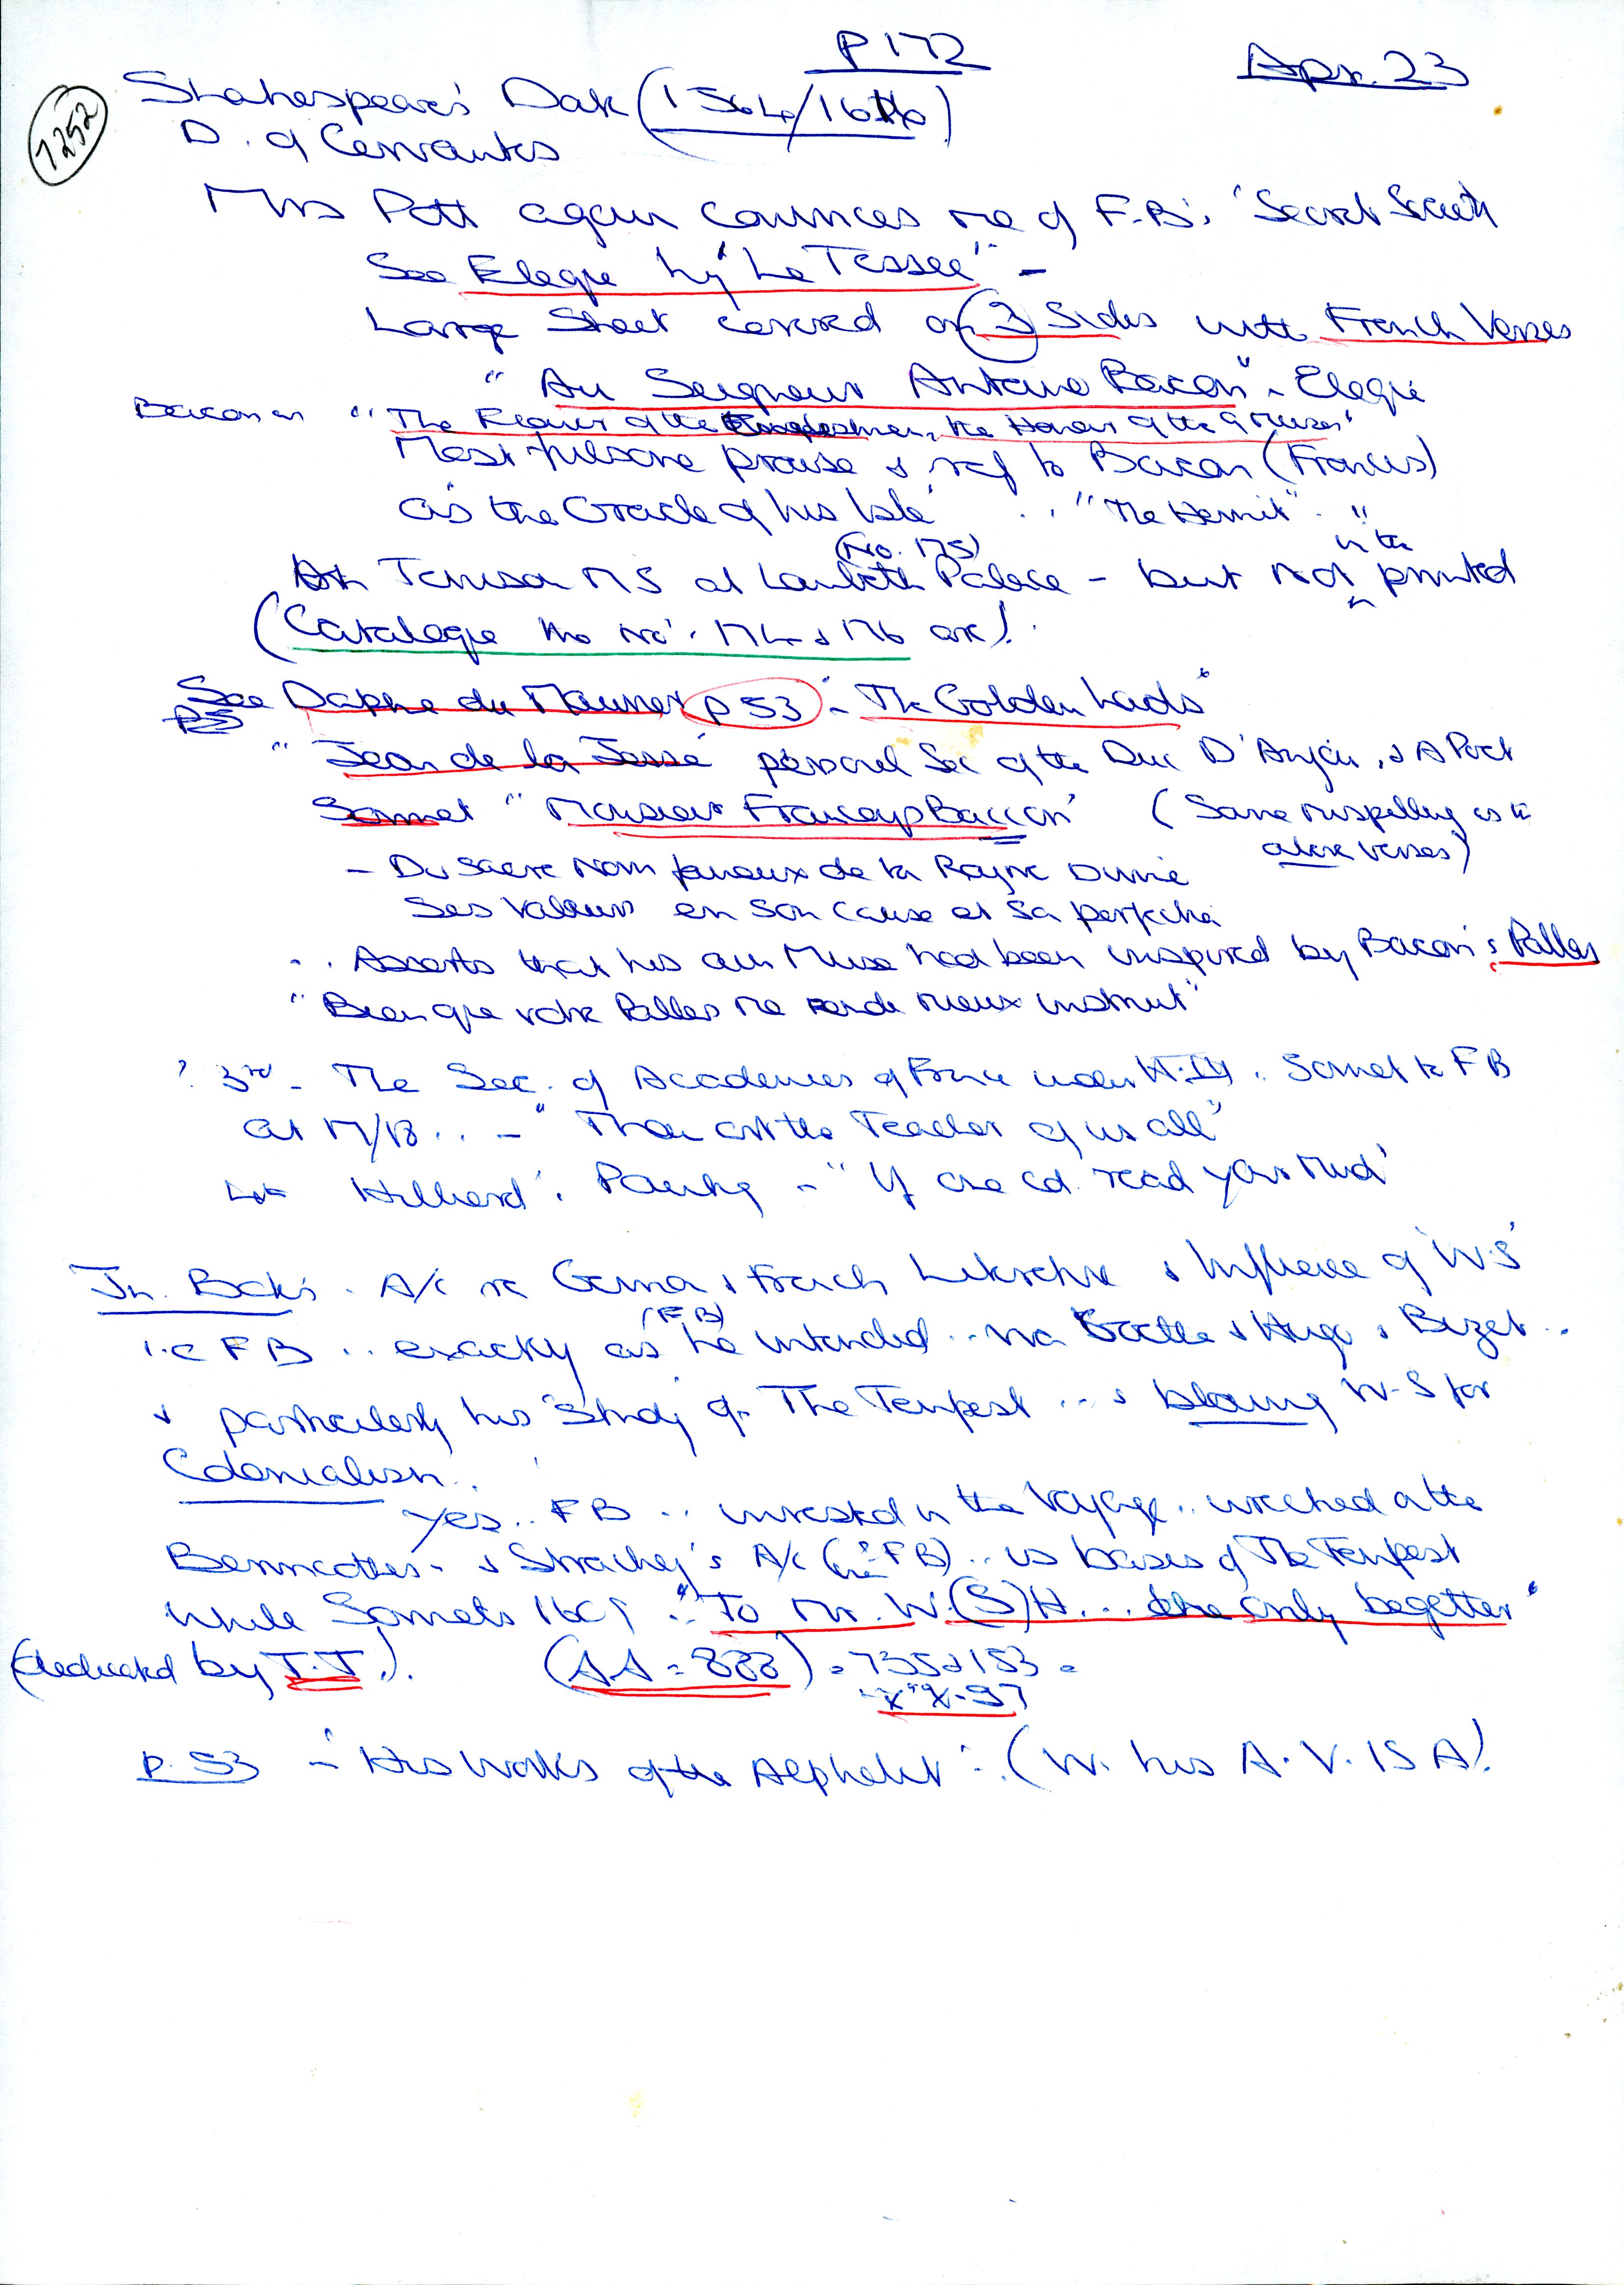 P 172
Apr. 23
7252
Shakespeare's Date (1564/1616)
D. of Cervantes
Mrs Pott again convinces me of F.B's "Secret Society
See Elegie by "La Tessee" -
Large Sheet covered on (3) Sides with French Verses
"Au Seigneur Antoine Bacon" - Elegie
Bacon as "The Flower of the Englishmen, the Honor of the 9 Muses"
Most fulsome praise & ref to Bacon (Francis)
as the Oracle of his Isle .. "The Hermit" . "
(No. 175)
in the
Tenison MS at Lambeth Palace - but not printed
(Catalogue tho No's 174 & 176 are).
See Daphne du Maurier P 53 - The Golden Lads"
P53
"Jean de la Jessé personal Sec of the Duc D'Anjou, & A Poet
Sonnet "Monsieur Francoys Baccon" (Same mispelling as in
above verses)
- Du sacre Nom fameux de ta Royne Divine
Ses Valeurs en son cause et sa perfection
.. Asserts that his own Muse had been inspired by Bacon's Pallas
"Bien que votre Pallas me rende mieux instruit"
? 3rd - The Sec. of Academies of France under H.IV. Sonnet to F B
at 17/18 .. - "Thou art the Teacher of us all"
Hilliard's Painting - "If one cd. read your Mind'
A/c re German & French Literature & Influence of 'W.S'
(F B)
i.e F B .. exactly as he intended .. via Goethe & Hugo & Bizet ..
& particularly his Study of The Tempest ... & blaming W-S for
Colonialism.
Yes .. F B .. invested in the Voyage .. wrecked at the
Bermudas - & Strachey's A/c ( FB) .. is basis of The Tempest
while Sonnets 1609 :- "To Mr. W.(S)H... the only begetter"
(dedicated by T.T.). (AA = 888) = 735 & 153 =
p. 53 - "His Works of the Alphabet" :. (W. his A.V. IS A).